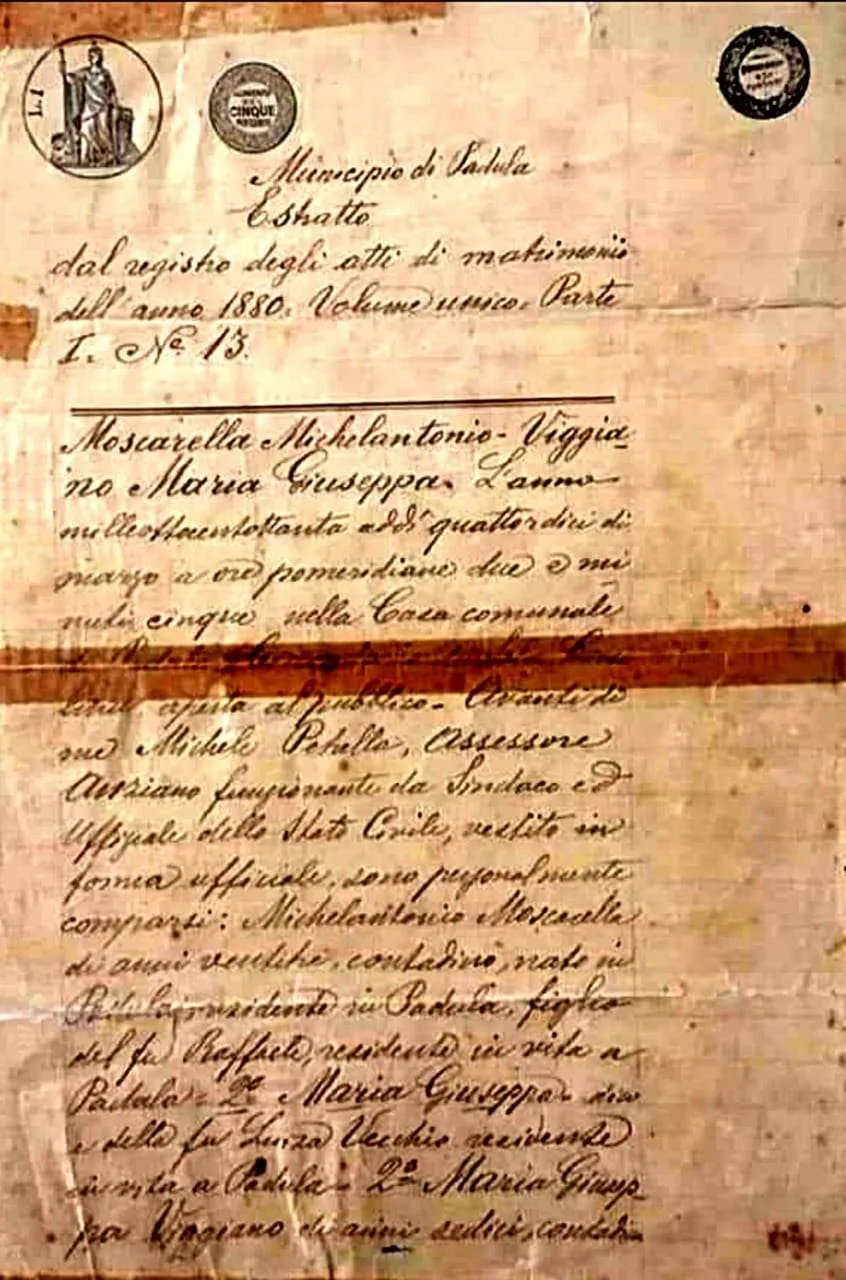 L. 1
CINQUE
Municipio di Padula
Estratto
dal registro degli atti di matrimonio
dell'anno 1880. Volume unico. Parte
I. Nº 13.
Moscarella Michelantonio - Viggia
no Maria Giuseppa. L'anno
milleottocentottanta addì quattordici di
marzo a ore pomeridiane due e mi
nuti cinque nella Casa comunale
di Padula
aperta al pubblico - Avanti di
me Michele Petrella, Assessore
Anziano funzionante da Sindaco ed
Uffiziale dello Stato Civile, vestito in
forma ufficiale, sono personalmente
comparsi: Michelantonio Moscarella
di anni ventitre, contadino, nato in
Padula, residente in Padula, figlio
del fu Raffaele, residente in vita a
Padula - 2º Maria Giuseppa
e della fu Luisa Vecchio residente
in vita a Padula - 2º Maria Giusep
pa Viggiano di anni sedici, contadin